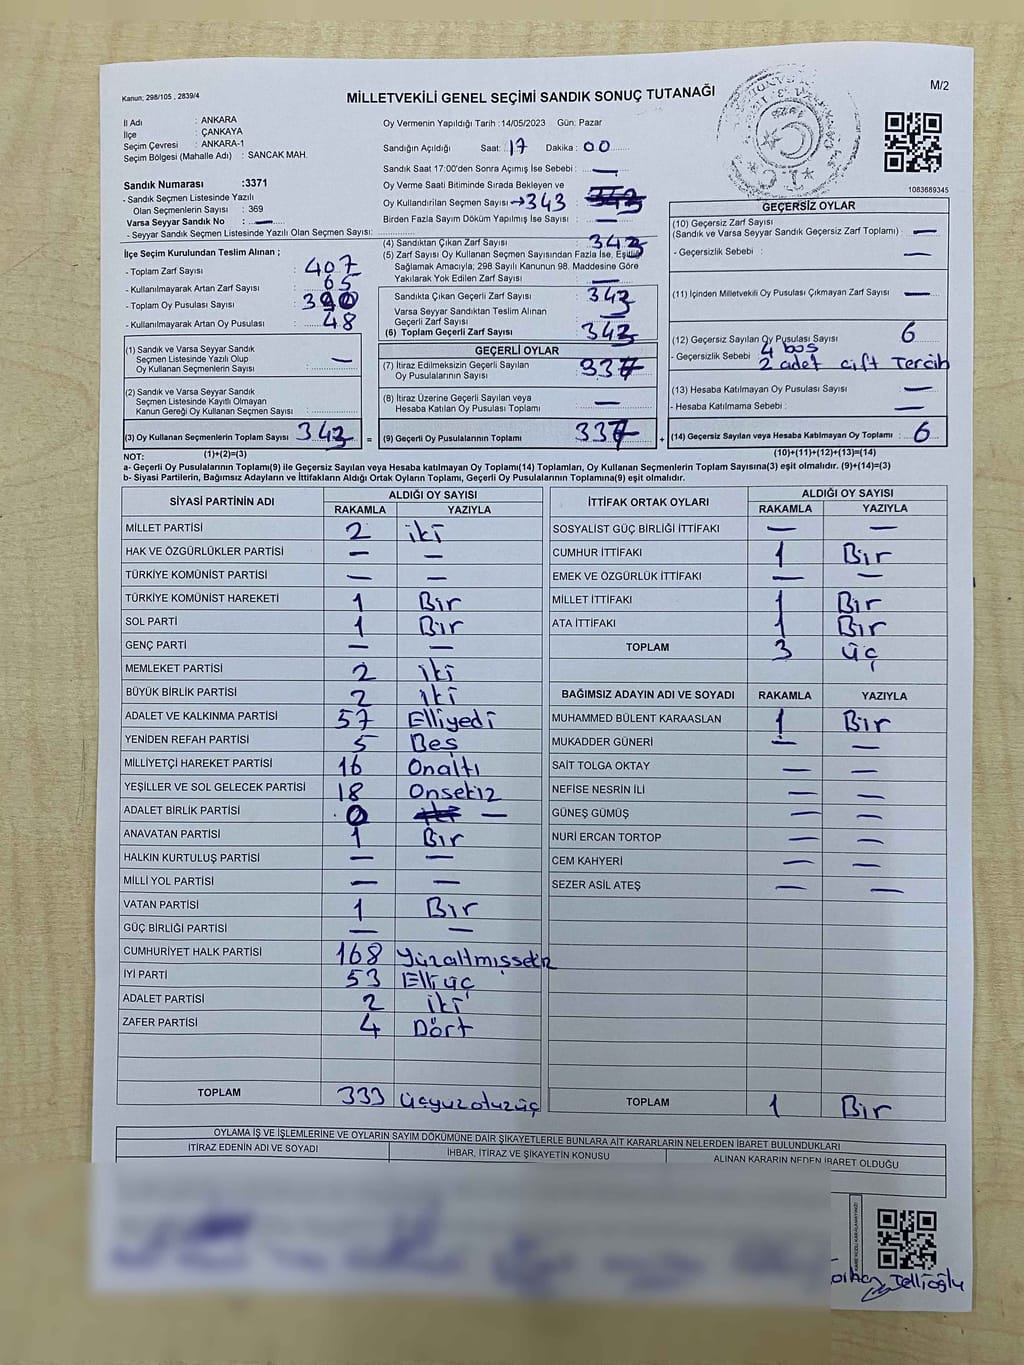 Kanun; 298/105 , 2839/4
MİLLETVEKİLİ GENEL SEÇİMİ SANDIK SONUÇ TUTANAĞI
M/2
İl Adı : ANKARA
İlçe : ÇANKAYA
Seçim Çevresi : ANKARA-1
Seçim Bölgesi (Mahalle Adı) : SANCAK MAH.
Oy Vermenin Yapıldığı Tarih : 14/05/2023 Gün: Pazar
Sandığın Açıldığı Saat: 17 Dakika : 00
Sandık Saat 17:00'den Sonra Açımış İse Sebebi : —
Oy Verme Saati Bitiminde Sırada Bekleyen ve
Oy Kullandırılan Seçmen Sayısı → 343
Birden Fazla Sayım Döküm Yapılmış İse Sayısı : —
1083689345
Sandık Numarası :3371
- Sandık Seçmen Listesinde Yazılı
Olan Seçmenlerin Sayısı : 369
Varsa Seyyar Sandık No : —
- Seyyar Sandık Seçmen Listesinde Yazılı Olan Seçmen Sayısı:
İlçe Seçim Kurulundan Teslim Alınan ;
- Toplam Zarf Sayısı : 407
- Kullanılmayarak Artan Zarf Sayısı : 65
- Toplam Oy Pusulası Sayısı : 390
- Kullanılmayarak Artan Oy Pusulası : 48
(1) Sandık ve Varsa Seyyar Sandık
Seçmen Listesinde Yazılı Olup
Oy Kullanan Seçmenlerin Sayısı : —
(2) Sandık ve Varsa Seyyar Sandık
Seçmen Listesinde Kayıtlı Olmayan
Kanun Gereği Oy Kullanan Seçmen Sayısı :
(3) Oy Kullanan Seçmenlerin Toplam Sayısı : 343
(4) Sandıktan Çıkan Zarf Sayısı : 343
(5) Zarf Sayısı Oy Kullanan Seçmen Sayısından Fazla İse, Eşitliği
Sağlamak Amacıyla; 298 Sayılı Kanunun 98. Maddesine Göre
Yakılarak Yok Edilen Zarf Sayısı : —
Sandıkta Çıkan Geçerli Zarf Sayısı : 343
Varsa Seyyar Sandıktan Teslim Alınan
Geçerli Zarf Sayısı : —
(6) Toplam Geçerli Zarf Sayısı : 343
GEÇERLİ OYLAR
(7) İtiraz Edilmeksizin Geçerli Sayılan
Oy Pusulalarının Sayısı : 337
(8) İtiraz Üzerine Geçerli Sayılan veya
Hesaba Katılan Oy Pusulası Toplamı : —
= (9) Geçerli Oy Pusulalarının Toplamı : 337 +
GEÇERSİZ OYLAR
(10) Geçersiz Zarf Sayısı
(Sandık ve Varsa Seyyar Sandık Geçersiz Zarf Toplamı) : —
- Geçersizlik Sebebi : —
(11) İçinden Milletvekili Oy Pusulası Çıkmayan Zarf Sayısı : —
(12) Geçersiz Sayılan Oy Pusulası Sayısı : 6
- Geçersizlik Sebebi : 4 boş
2 adet çift Tercih
(13) Hesaba Katılmayan Oy Pusulası Sayısı : —
- Hesaba Katılmama Sebebi : —
(14) Geçersiz Sayılan veya Hesaba Katılmayan Oy Toplamı : 6
NOT: (1)+(2)=(3) (10)+(11)+(12)+(13)=(14)
a- Geçerli Oy Pusulalarının Toplamı(9) ile Geçersiz Sayılan veya Hesaba katılmayan Oy Toplamı(14) Toplamları, Oy Kullanan Seçmenlerin Toplam Sayısına(3) eşit olmalıdır. (9)+(14)=(3)
b- Siyasi Partilerin, Bağımsız Adayların ve İttifakların Aldığı Ortak Oyların Toplamı, Geçerli Oy Pusulalarının Toplamına(9) eşit olmalıdır.
SİYASİ PARTİNİN ADI ALDIĞI OY SAYISI
RAKAMLA YAZIYLA
MİLLET PARTİSİ 2 iki
HAK VE ÖZGÜRLÜKLER PARTİSİ — —
TÜRKİYE KOMÜNİST PARTİSİ — —
TÜRKİYE KOMÜNİST HAREKETİ 1 Bir
SOL PARTİ 1 Bir
GENÇ PARTİ — —
MEMLEKET PARTİSİ 2 iki
BÜYÜK BİRLİK PARTİSİ 2 iki
ADALET VE KALKINMA PARTİSİ 57 Elliyedi
YENİDEN REFAH PARTİSİ 5 Beş
MİLLİYETÇİ HAREKET PARTİSİ 16 Onaltı
YEŞİLLER VE SOL GELECEK PARTİSİ 18 Onsekiz
ADALET BİRLİK PARTİSİ 0 —
ANAVATAN PARTİSİ 1 Bir
HALKIN KURTULUŞ PARTİSİ — —
MİLLİ YOL PARTİSİ — —
VATAN PARTİSİ 1 Bir
GÜÇ BİRLİĞİ PARTİSİ — —
CUMHURİYET HALK PARTİSİ 168 Yüzaltmışsekiz
İYİ PARTİ 53 Elliüç
ADALET PARTİSİ 2 iki
ZAFER PARTİSİ 4 Dört
TOPLAM 333 üçyüzotuzüç
İTTİFAK ORTAK OYLARI ALDIĞI OY SAYISI
RAKAMLA YAZIYLA
SOSYALİST GÜÇ BİRLİĞİ İTTİFAKI — —
CUMHUR İTTİFAKI 1 Bir
EMEK VE ÖZGÜRLÜK İTTİFAKI — —
MİLLET İTTİFAKI 1 Bir
ATA İTTİFAKI 1 Bir
TOPLAM 3 üç
BAĞIMSIZ ADAYIN ADI VE SOYADI RAKAMLA YAZIYLA
MUHAMMED BÜLENT KARAASLAN 1 Bir
MUKADDER GÜNERİ — —
SAİT TOLGA OKTAY — —
NEFİSE NESRİN İLİ — —
GÜNEŞ GÜMÜŞ — —
NURİ ERCAN TORTOP — —
CEM KAHYERİ — —
SEZER ASİL ATEŞ — —
TOPLAM 1 Bir
OYLAMA İŞ VE İŞLEMLERİNE VE OYLARIN SAYIM DÖKÜMÜNE DAİR ŞİKAYETLERLE BUNLARA AİT KARARLARIN NELERDEN İBARET BULUNDUKLARI
İTİRAZ EDENİN ADI VE SOYADI İHBAR, İTİRAZ VE ŞİKAYETİN KONUSU ALINAN KARARIN NEDEN İBARET OLDUĞU